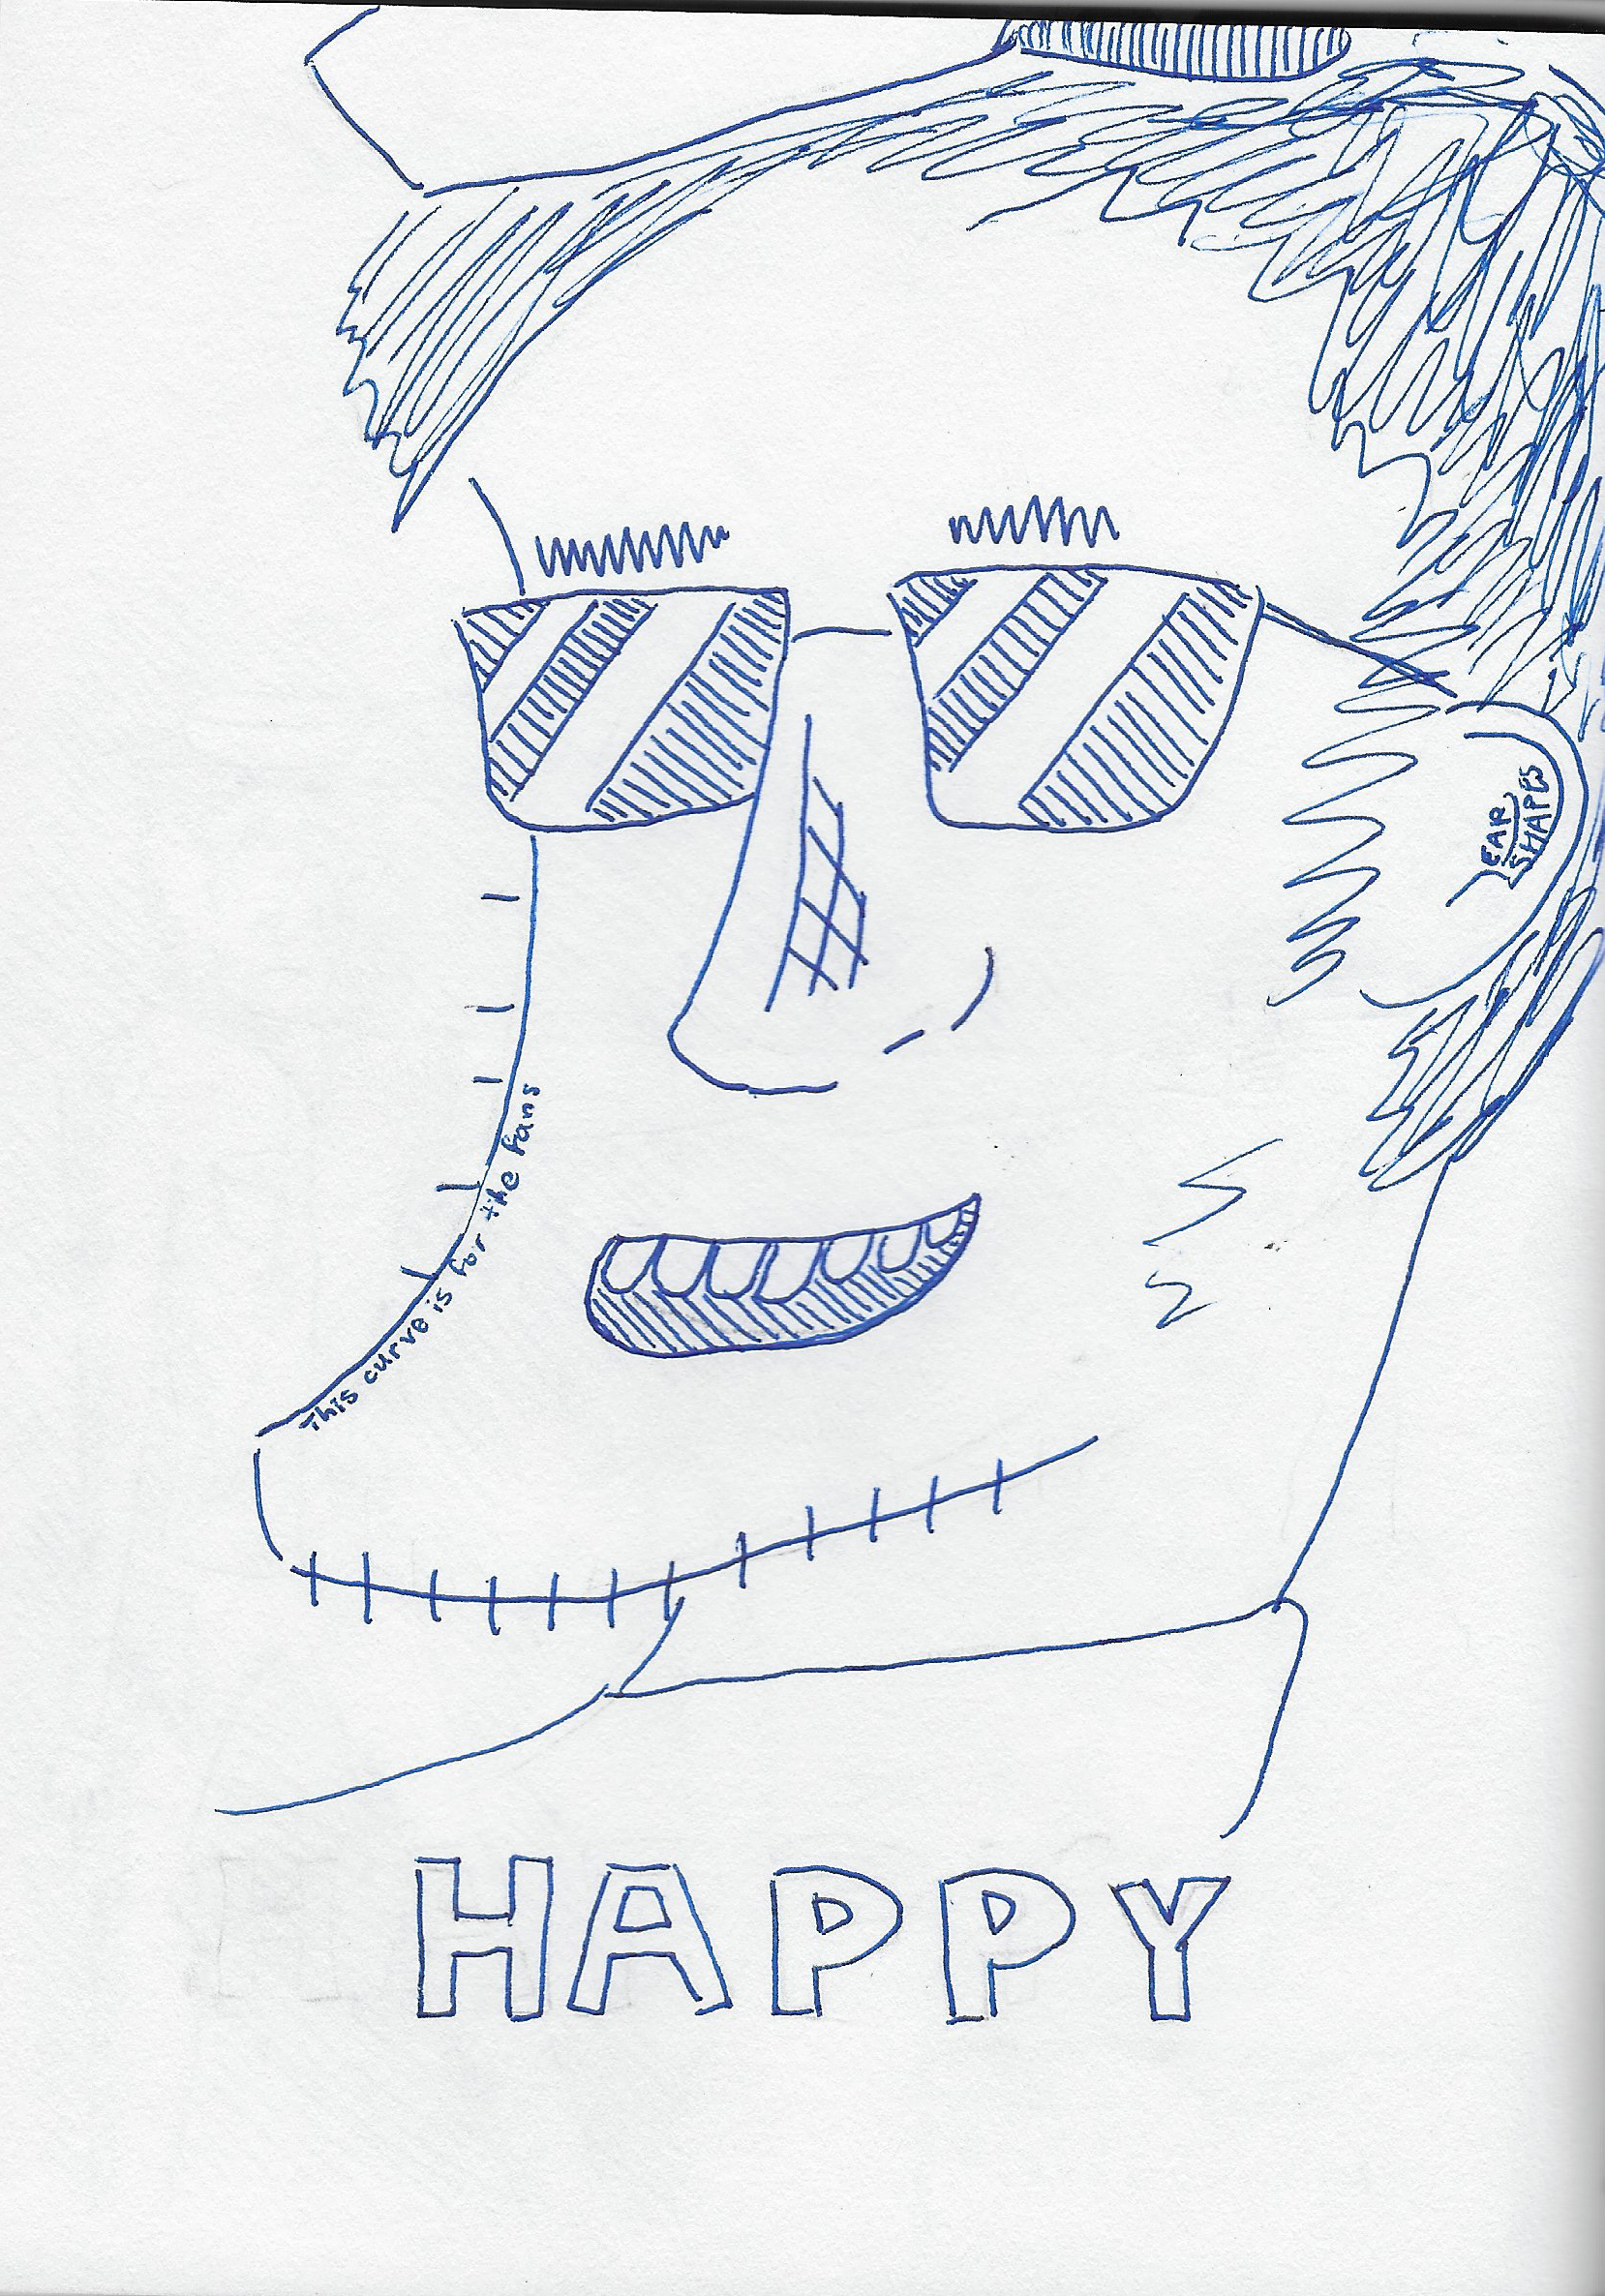 EAR
SHAPES
This curve is for the fans
HAPPY